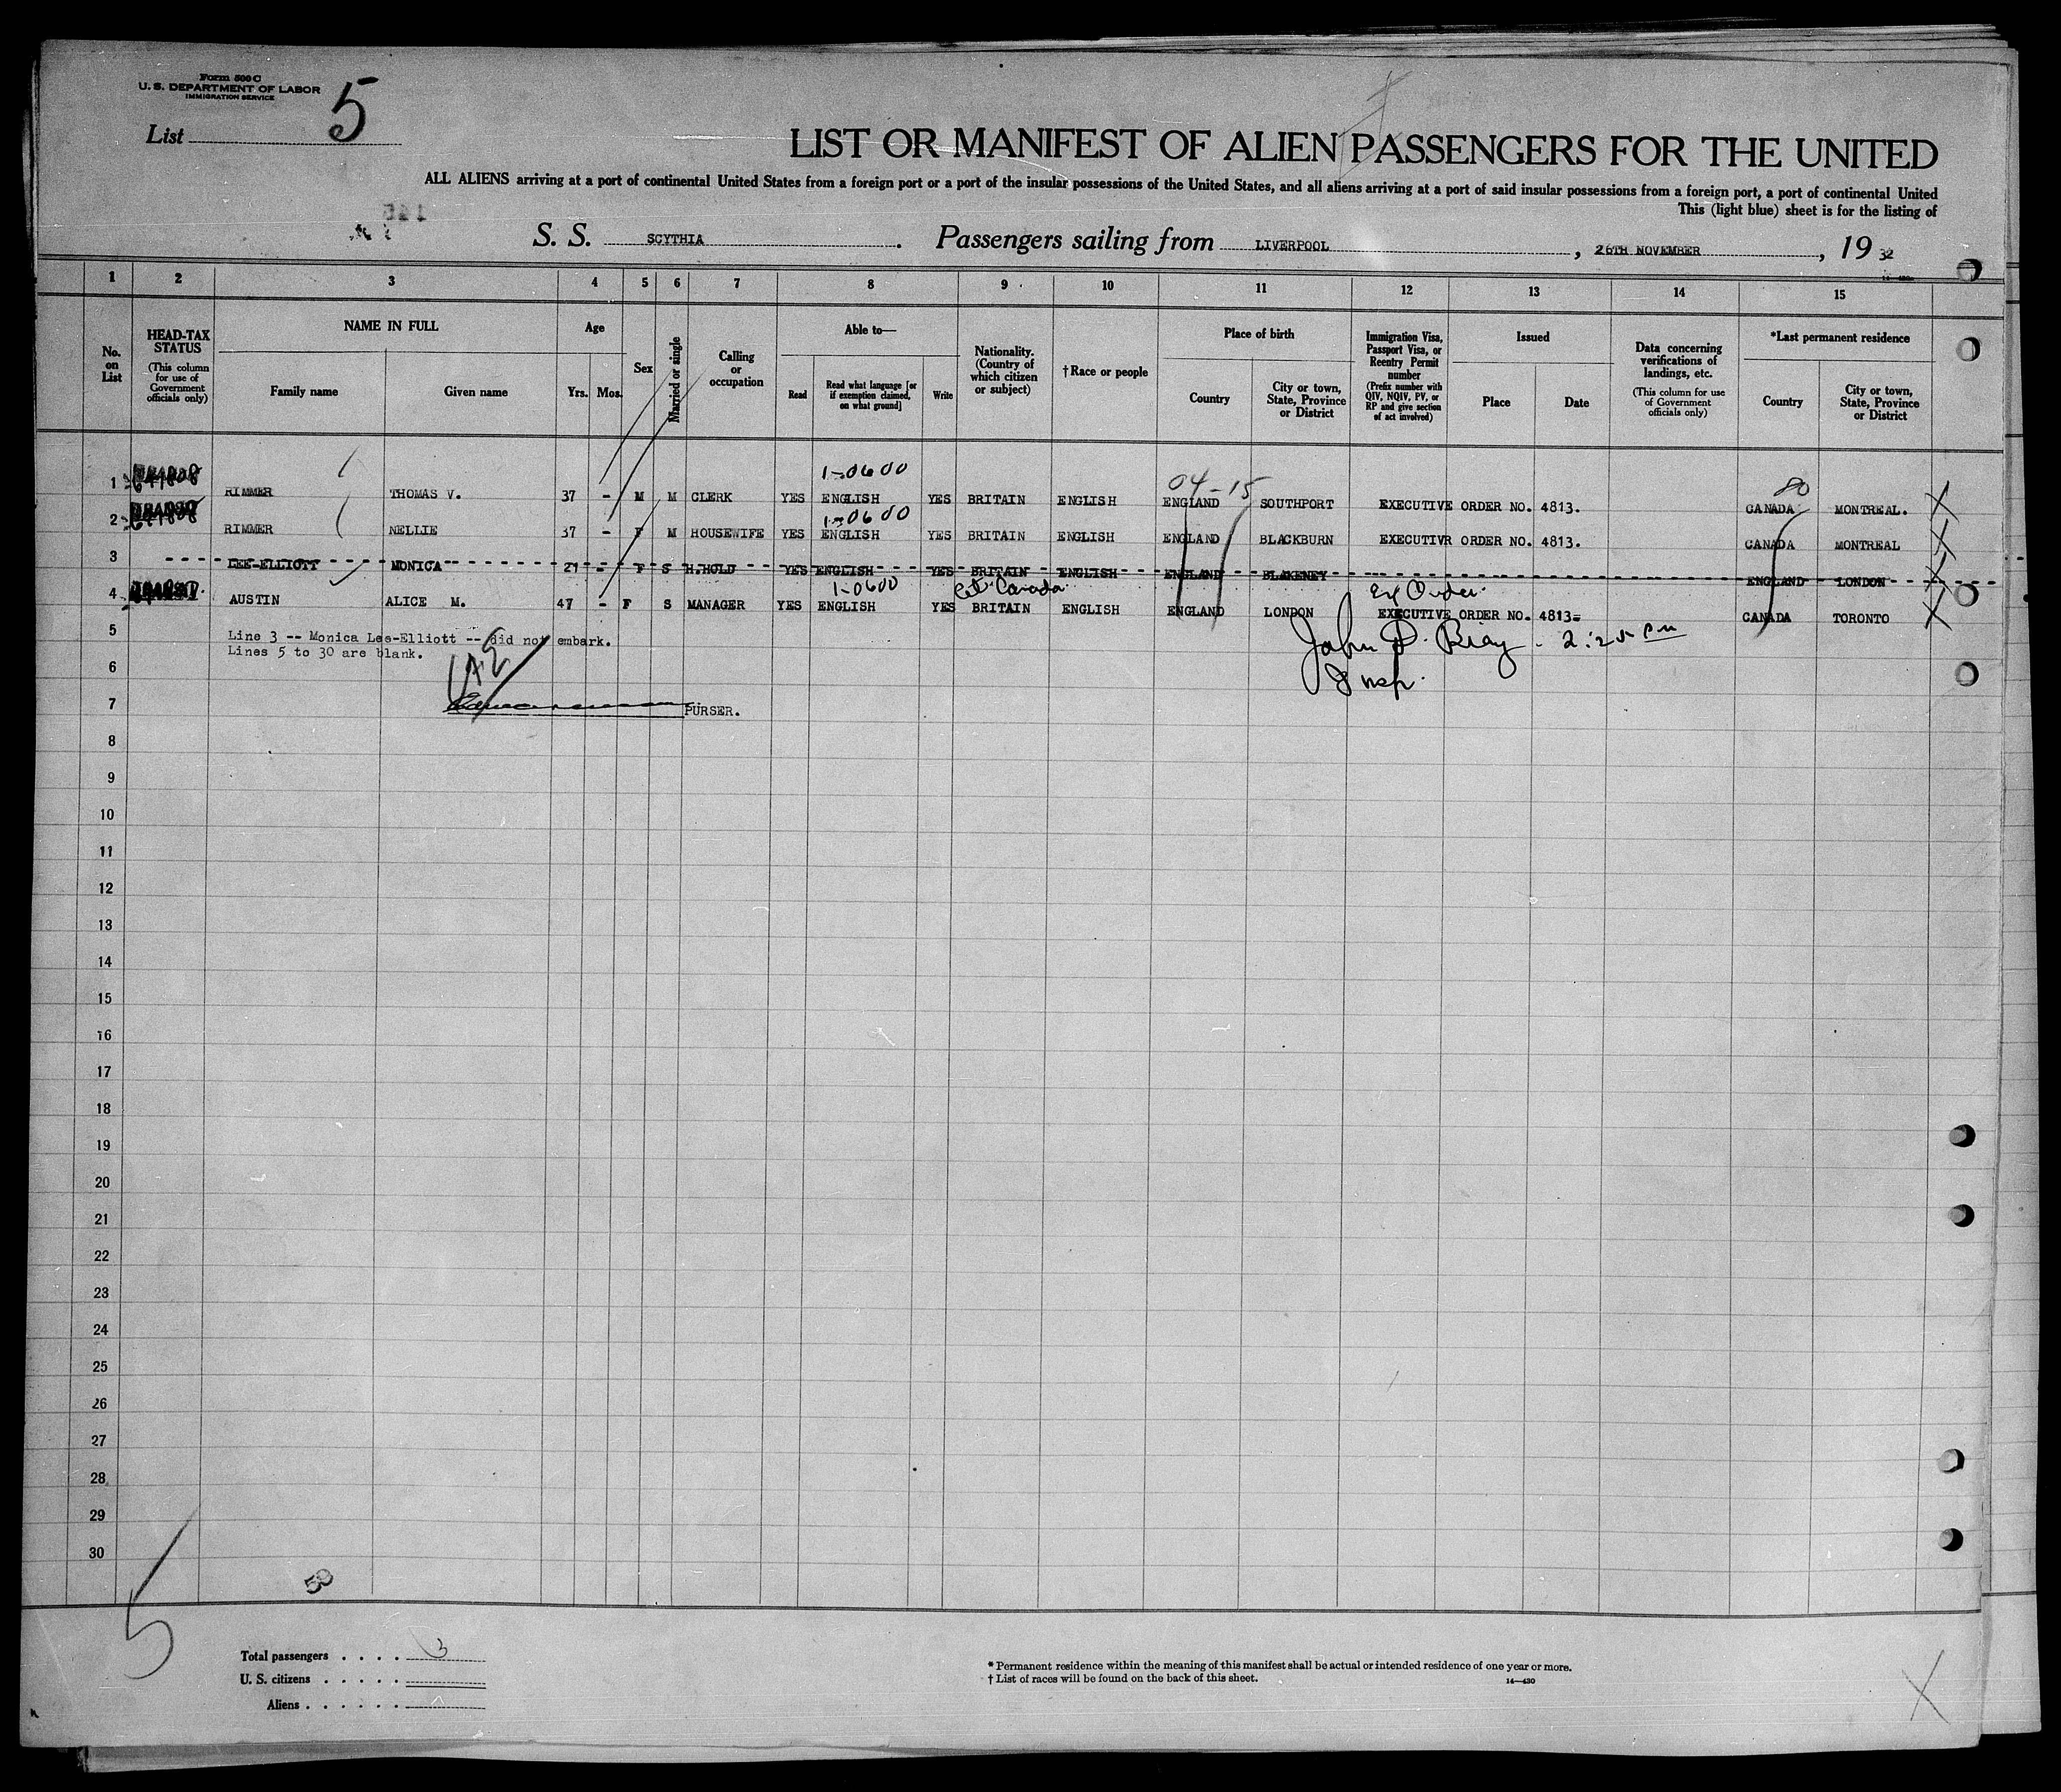 Form 500 C
U. S. DEPARTMENT OF LABOR
IMMIGRATION SERVICE
List 5
LIST OR MANIFEST OF ALIEN PASSENGERS FOR THE UNITED
ALL ALIENS arriving at a port of continental United States from a foreign port or a port of the insular possessions of the United States, and all aliens arriving at a port of said insular possessions from a foreign port, a port of continental United
This (light blue) sheet is for the listing of
S. S. SCYTHIA. Passengers sailing from LIVERPOOL, 26TH NOVEMBER, 19 32
1 2 3 4 5 6 7 8 9 10 11 12 13 14 15
No. on List
HEAD-TAX STATUS
(This column for use of Government officials only)
NAME IN FULL
Family name
Given name
Age
Yrs. Mos.
Sex
Married or single
Calling or occupation
Able to—
Read
Read what language [or if exemption claimed, on what ground]
Write
Nationality. (Country of which citizen or subject)
†Race or people
Place of birth
Country
City or town, State, Province or District
Immigration Visa, Passport Visa, or Reentry Permit number
(Prefix number with QIV, NQIV, PV, or RP and give section of act involved)
Issued
Place
Date
Data concerning verifications of landings, etc.
(This column for use of Government officials only)
*Last permanent residence
Country
City or town, State, Province or District
1-0600 04-15 80
1 RIMMER THOMAS V. 37 - M M CLERK YES ENGLISH YES BRITAIN ENGLISH ENGLAND SOUTHPORT EXECUTIVE ORDER NO. 4813. CANADA MONTREAL. X
1-0600
2 RIMMER NELLIE 37 - F M HOUSEWIFE YES ENGLISH YES BRITAIN ENGLISH ENGLAND BLACKBURN EXECUTIVR ORDER NO. 4813. CANADA MONTREAL X
3 LEE-ELLIOTT MONICA 27 - F S H.HOLD YES ENGLISH YES BRITAIN ENGLISH ENGLAND BLAKENEY ENGLAND LONDON X
1-0600 Cit. Canada Ex Order.
4 AUSTIN ALICE M. 47 - F S MANAGER YES ENGLISH YES BRITAIN ENGLISH ENGLAND LONDON EXECUTIVE ORDER NO. 4813= CANADA TORONTO X
5 Line 3 -- Monica Lee-Elliott -- did not embark.
Lines 5 to 30 are blank.
John D. - 2:25 PM
Insp.
6
7 PURSER.
8
9
10
11
12
13
14
15
16
17
18
19
20
21
22
23
24
25
26
27
28
29
30
5
50
Total passengers . . . . 3
U. S. citizens . . . . .
Aliens . . . . . .
* Permanent residence within the meaning of this manifest shall be actual or intended residence of one year or more.
† List of races will be found on the back of this sheet.
14—430
X